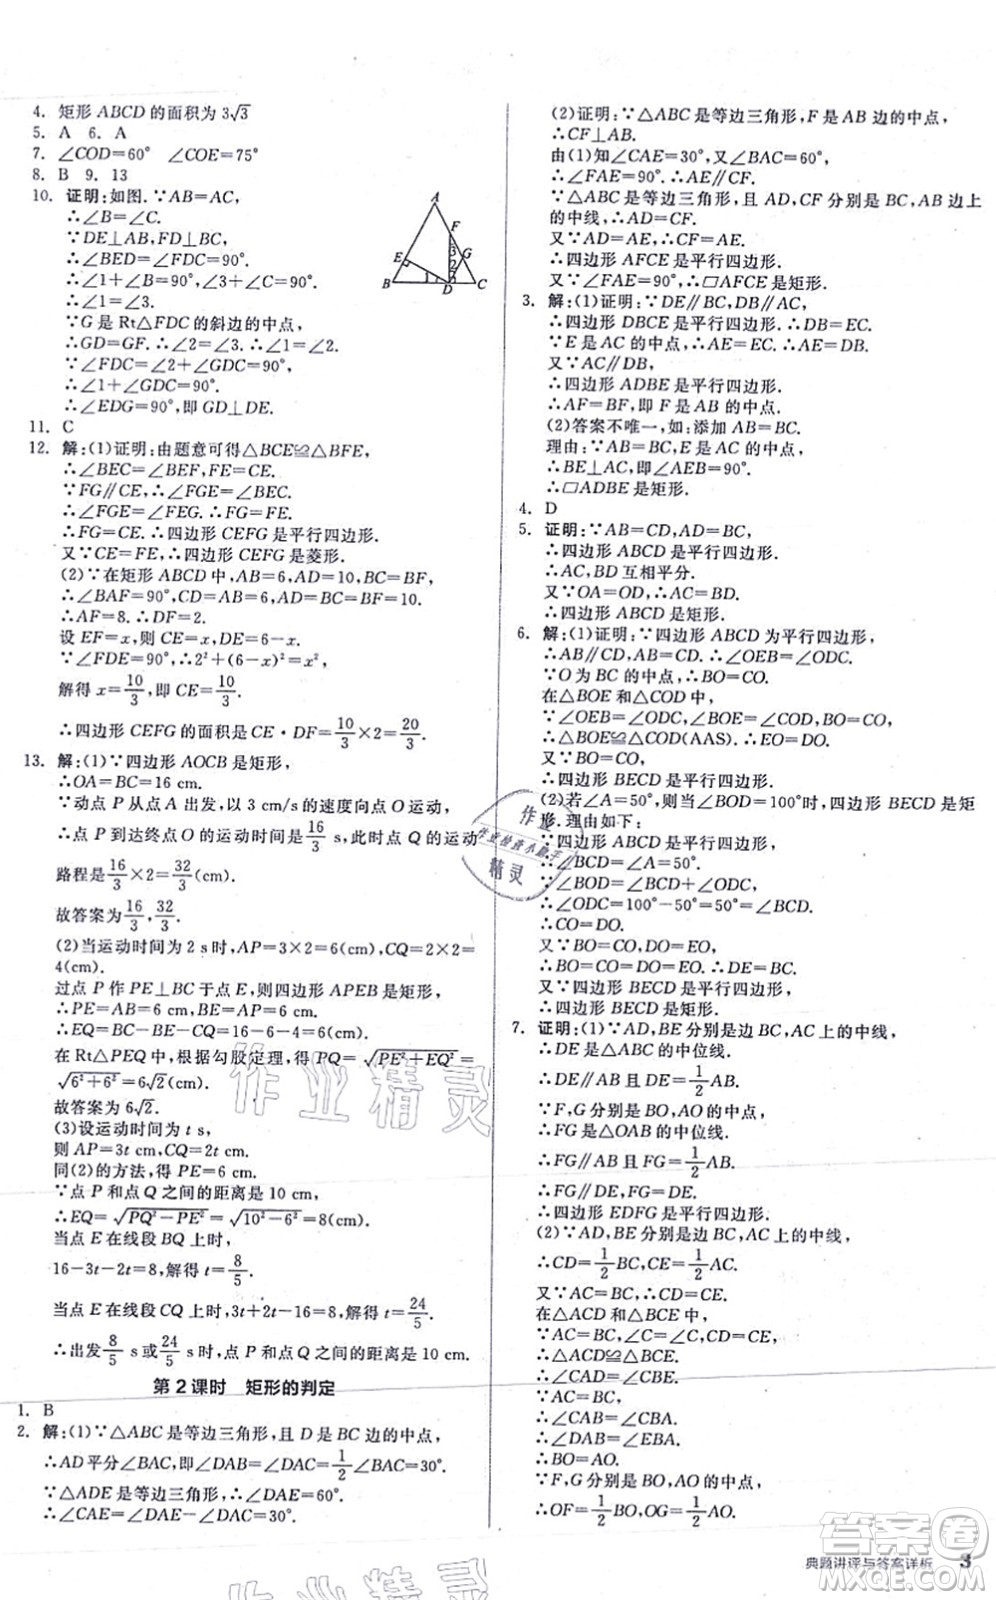 4. 矩形 ABCD 的面积为 3√3
5. A 6. A
7. ∠COD=60° ∠COE=75°
8. B 9. 13
10. 证明:如图.∵AB=AC,
∴∠B=∠C.
∵DE⊥AB,FD⊥BC,
∴∠BED=∠FDC=90°.
∴∠1+∠B=90°,∠3+∠C=90°.
∴∠1=∠3.
∵G 是 Rt△FDC 的斜边的中点,
∴GD=GF.∴∠2=∠3.∴∠1=∠2.
∵∠FDC=∠2+∠GDC=90°,
∴∠1+∠GDC=90°.
∴∠EDG=90°,即 GD⊥DE.
A
F
3
E
G
2
1
B
D
C
11. C
12. 解:(1)证明:由题意可得△BCE≌△BFE,
∴∠BEC=∠BEF,FE=CE.
∵FG∥CE,∴∠FGE=∠BEC.
∴∠FGE=∠FEG.∴FG=FE.
∴FG=CE.∴四边形 CEFG 是平行四边形.
又∵CE=FE,∴四边形 CEFG 是菱形.
(2)∵在矩形 ABCD 中,AB=6,AD=10,BC=BF,
∴∠BAF=90°,CD=AB=6,AD=BC=BF=10.
∴AF=8.∴DF=2.
设 EF=x,则 CE=x,DE=6-x.
∵∠FDE=90°,∴2²+(6-x)²=x².
解得 x=10/3,即 CE=10/3.
∴四边形 CEFG 的面积是 CE·DF=10/3×2=20/3.
13. 解:(1)∵四边形 AOCB 是矩形,
∴OA=BC=16 cm.
∵动点 P 从点 A 出发,以 3 cm/s 的速度向点 O 运动,
∴点 P 到达终点 O 的运动时间是 16/3 s,此时点 Q 的运动
路程是 16/3×2=32/3(cm).
故答案为 16/3,32/3.
(2)当运动时间为 2 s时,AP=3×2=6(cm),CQ=2×2=
4(cm).
过点 P 作 PE⊥BC 于点 E,则四边形 APEB 是矩形.
∴PE=AB=6 cm,BE=AP=6 cm.
∴EQ=BC-BE-CQ=16-6-4=6(cm).
在 Rt△PEQ 中,根据勾股定理,得 PQ=√(PE²+EQ²)=
√(6²+6²)=6√2(cm).
故答案为 6√2.
(3)设运动时间为 t s,
则 AP=3t cm,CQ=2t cm.
同(2)的方法,得 PE=6 cm,
∵点 P 和点 Q 之间的距离是 10 cm,
∴EQ=√(PQ²-PE²)=√(10²-6²)=8(cm).
当点 E 在线段 BQ 上时,
16-3t-2t=8,解得 t=8/5.
当点 E 在线段 CQ 上时,3t+2t-16=8,解得 t=24/5.
∴出发 8/5 s或 24/5 s时,点 P 和点 Q 之间的距离是 10 cm.
第 2 课时 矩形的判定
1. B
2. 解:(1)∵△ABC 是等边三角形,且 D 是 BC 边的中点,
∴AD 平分∠BAC,即∠DAB=∠DAC=1/2∠BAC=30°.
∵△ADE 是等边三角形,∴∠DAE=60°.
∴∠CAE=∠DAE-∠DAC=30°.
(2)证明:∵△ABC 是等边三角形,F 是 AB 的中点,
∴CF⊥AB.
由(1)知∠CAE=30°,又∵∠BAC=60°,
∴∠FAE=90°.∴AE∥CF.
∵△ABC 是等边三角形,且 AD,CF 分别是 BC,AB 边上
的中线,∴AD=CF.
又∵AD=AE,∴CF=AE.
∴四边形 AFCE 是平行四边形.
又∵∠FAE=90°,∴▱AFCE 是矩形.
3. 解:(1)证明:∵DE∥BC,DB∥AC,
∴四边形 DBCE 是平行四边形.∴DB=EC.
∵E 是 AC 的中点,∴AE=EC.∴AE=DB.
又∵AC∥DB,
∴四边形 ADBE 是平行四边形.
∴AF=BF,即 F 是 AB 的中点.
(2)答案不唯一,如:添加 AB=BC.
理由:∵AB=BC,E 是 AC 的中点,
∴BE⊥AC,即∠AEB=90°.
∴▱ADBE 是矩形.
4. D
5. 证明:∵AB=CD,AD=BC,
∴四边形 ABCD 是平行四边形.
∴AC,BD 互相平分.
又∵OA=OD,∴AC=BD.
∴四边形 ABCD 是矩形.
6. 解:(1)证明:∵四边形 ABCD 为平行四边形,
∴AB∥CD,AB=CD.∴∠OEB=∠ODC.
∵O 为 BC 的中点,∴BO=CO.
在△BOE 和△COD 中,
∵∠OEB=∠ODC,∠BOE=∠COD,BO=CO,
∴△BOE≌△COD(AAS).∴EO=DO.
又∵BO=CO,
∴四边形 BECD 是平行四边形.
(2)若∠A=50°,则当∠BOD=100°时,四边形 BECD 是矩
形.理由如下:
∵四边形 ABCD 是平行四边形,
∴∠BCD=∠A=50°.
∵∠BOD=∠BCD+∠ODC,
∴∠ODC=100°-50°=50°=∠BCD.
∴CO=DO.
又∵BO=CO,DO=EO,
∴BO=CO=DO=EO.∴DE=BC.
又∵四边形 BECD 是平行四边形,
∴四边形 BECD 是矩形.
7. 证明:(1)∵AD,BE 分别是边 BC,AC 上的中线,
∴DE 是△ABC 的中位线.
∴DE∥AB 且 DE=1/2AB.
∵F,G 分别是 BO,AO 的中点,
∴FG 是△OAB 的中位线.
∴FG∥AB 且 FG=1/2AB.
∴FG∥DE,FG=DE.
∴四边形 EDFG 是平行四边形.
(2)∵AD,BE 分别是边 BC,AC 上的中线,
∴CD=1/2BC,CE=1/2AC.
又∵AC=BC,∴CD=CE.
在△ACD 和△BCE 中,
∵AC=BC,∠C=∠C,CD=CE,
∴△ACD≌△BCE.
∴∠CAD=∠CBE.
∵AC=BC,∴∠CAB=∠CBA.
∴∠DAB=∠EBA.
∴BO=AO.
∵F,G 分别是 BO,AO 的中点,
∴OF=1/2BO,OG=1/2AO.
作业
作业检查小助手
精灵
作业精灵
作业精灵
答案圈
MXQE.COM
典题讲评与答案详析 3